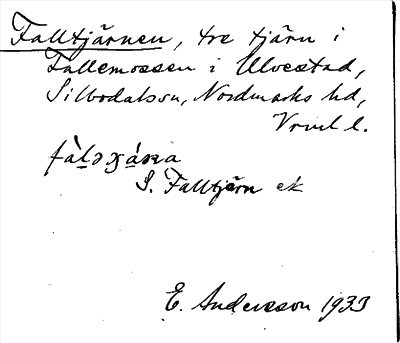 Falltjärnen, tre tjärn i
Fallemossen i Ulvestad,
Silbodals sn, Nordmarks hd,
Vrml l.
S. Falltjärn ek
E. Andersson 1933